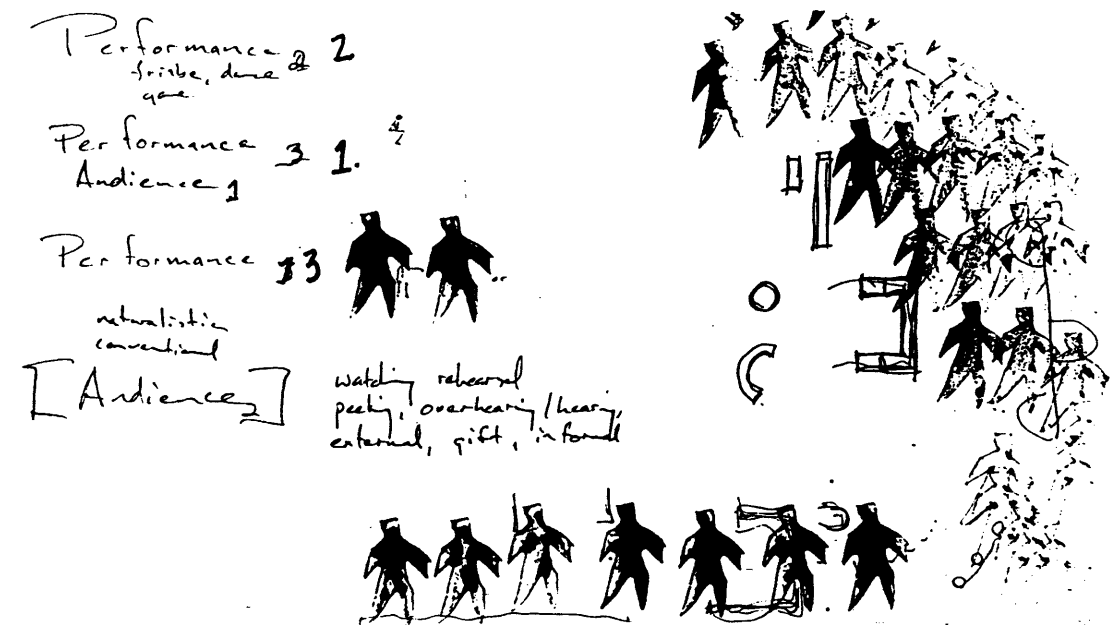 Performance 2 2
frisbe, dance
game
Performance 3 1.
Audience 1
Performance 3 3
naturalistic
conventional
[Audience 2]
watching rehearsal
peeking, overhearing/hearing,
external, gift, informal